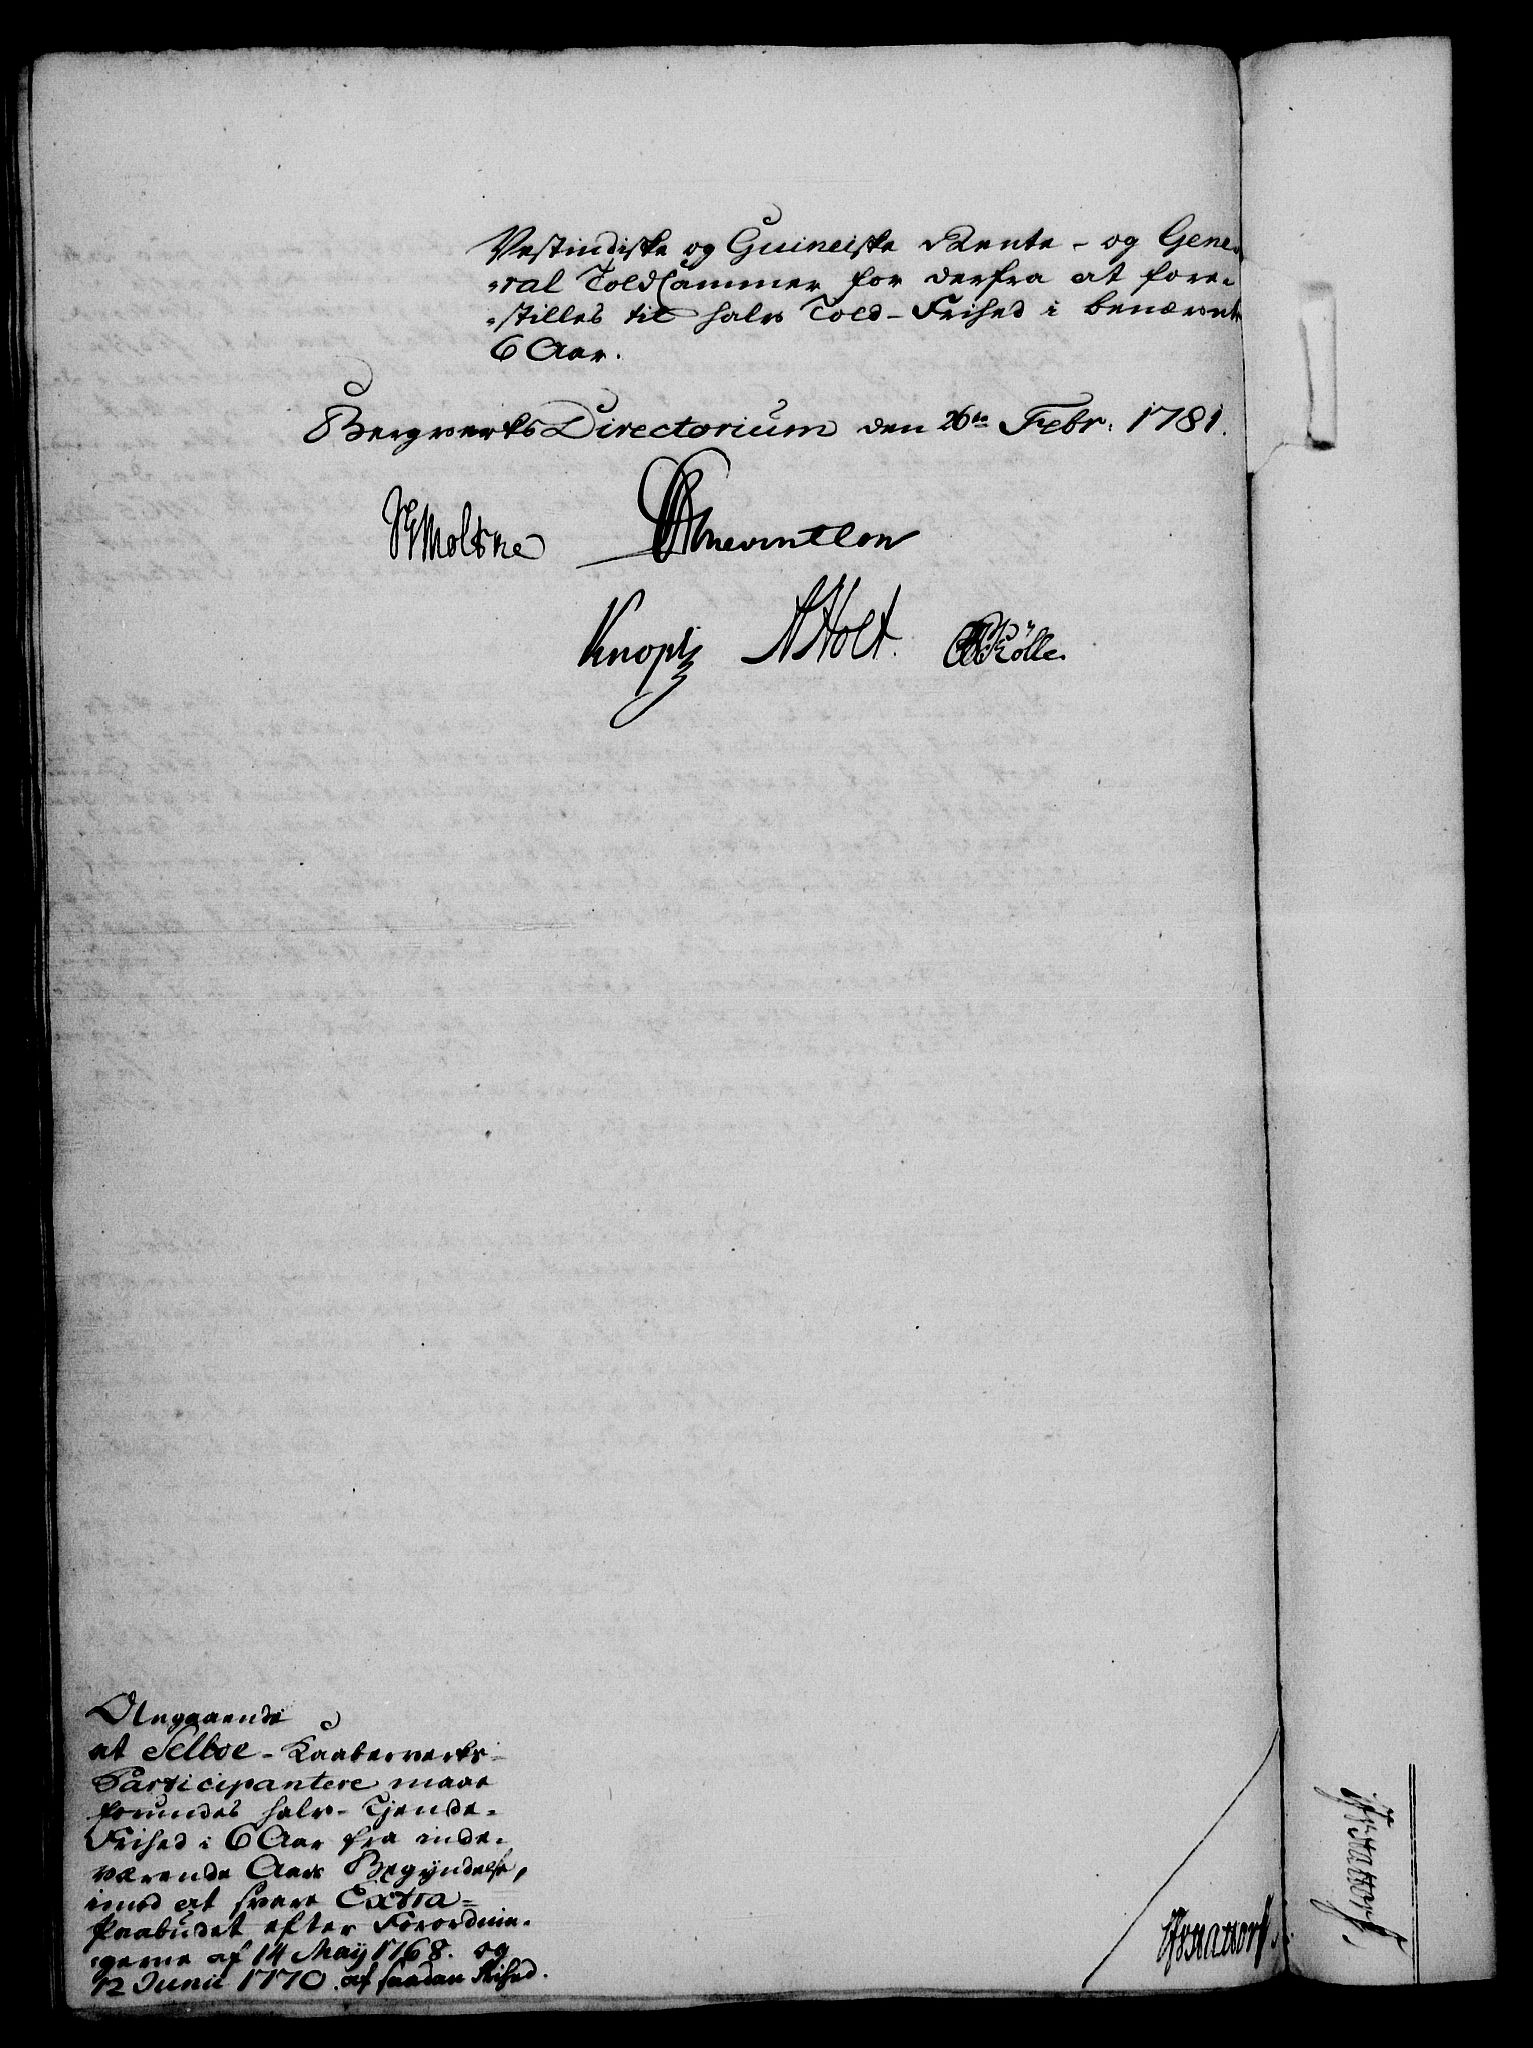 Vestindiske og Guineiske Rente- og Gene-
-ral ToldCammer for derfra at fore-
-stilles til halv Told-Frihed i benævnte
6 Aar.
Bergverks Directorium den 26de Febr: 1781.
Moltke Reventlow
Knoph Holt. Rölle.
Angaaende
at Selboe-Kaaberverks-
Participantere maae
forundes halv-Tjende-
Frihed i 6 Aar fra inde-
værende Aars Begyndelse,
imod at svare Extra-
Paabudet efter Forordnin-
gerne af 14 Maÿ 1768. og
12 Junii 1770. af saadan Frihed.